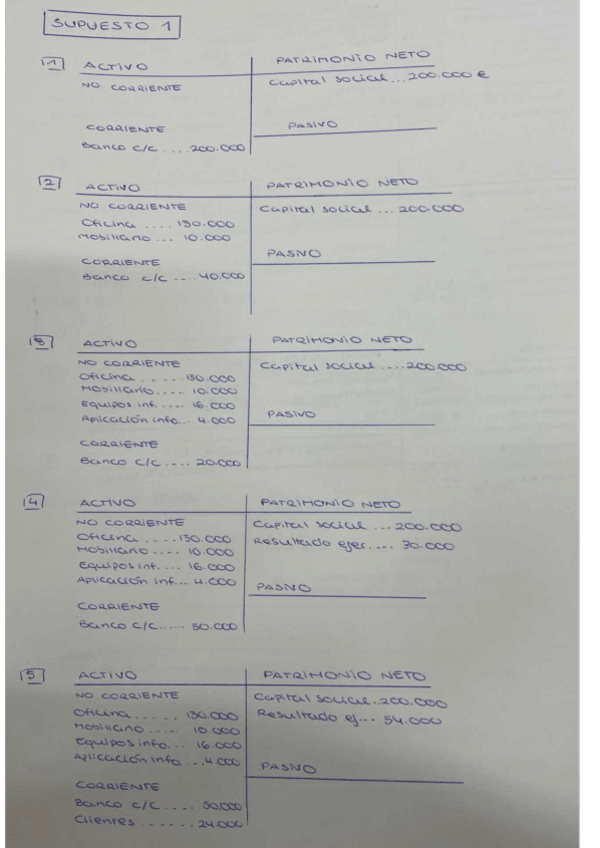 SUPUESTO 1
1 ACTIVO PATRIMONIO NETO
NO CORRIENTE Capital social ... 200.000 €
CORRIENTE PASIVO
Banco c/c .... 200.000
2 ACTIVO PATRIMONIO NETO
NO CORRIENTE Capital social ... 200.000
Oficina .... 150.000
Mobiliario ... 10.000
CORRIENTE PASIVO
Banco c/c .... 40.000
3 ACTIVO PATRIMONIO NETO
NO CORRIENTE Capital social .... 200.000
Oficina ..... 150.000
Mobiliario .... 10.000
Equipos inf. .... 16.000
Aplicación info... 4.000 PASIVO
CORRIENTE
Banco c/c .... 20.000
4 ACTIVO PATRIMONIO NETO
NO CORRIENTE Capital social ... 200.000
Oficina ..... 150.000 Resultado ejer.... 30.000
Mobiliario .... 10.000
Equipos inf. ... 16.000
Aplicación inf... 4.000 PASIVO
CORRIENTE
Banco c/c...... 50.000
5 ACTIVO PATRIMONIO NETO
NO CORRIENTE Capital social . 200.000
Oficina ...... 150.000 Resultado ej... 54.000
Mobiliario .... 10.000
Equipos info... 16.000
Aplicación info ... 4.000 PASIVO
CORRIENTE
Banco c/c .... 50.000
Clientes ...... 24.000